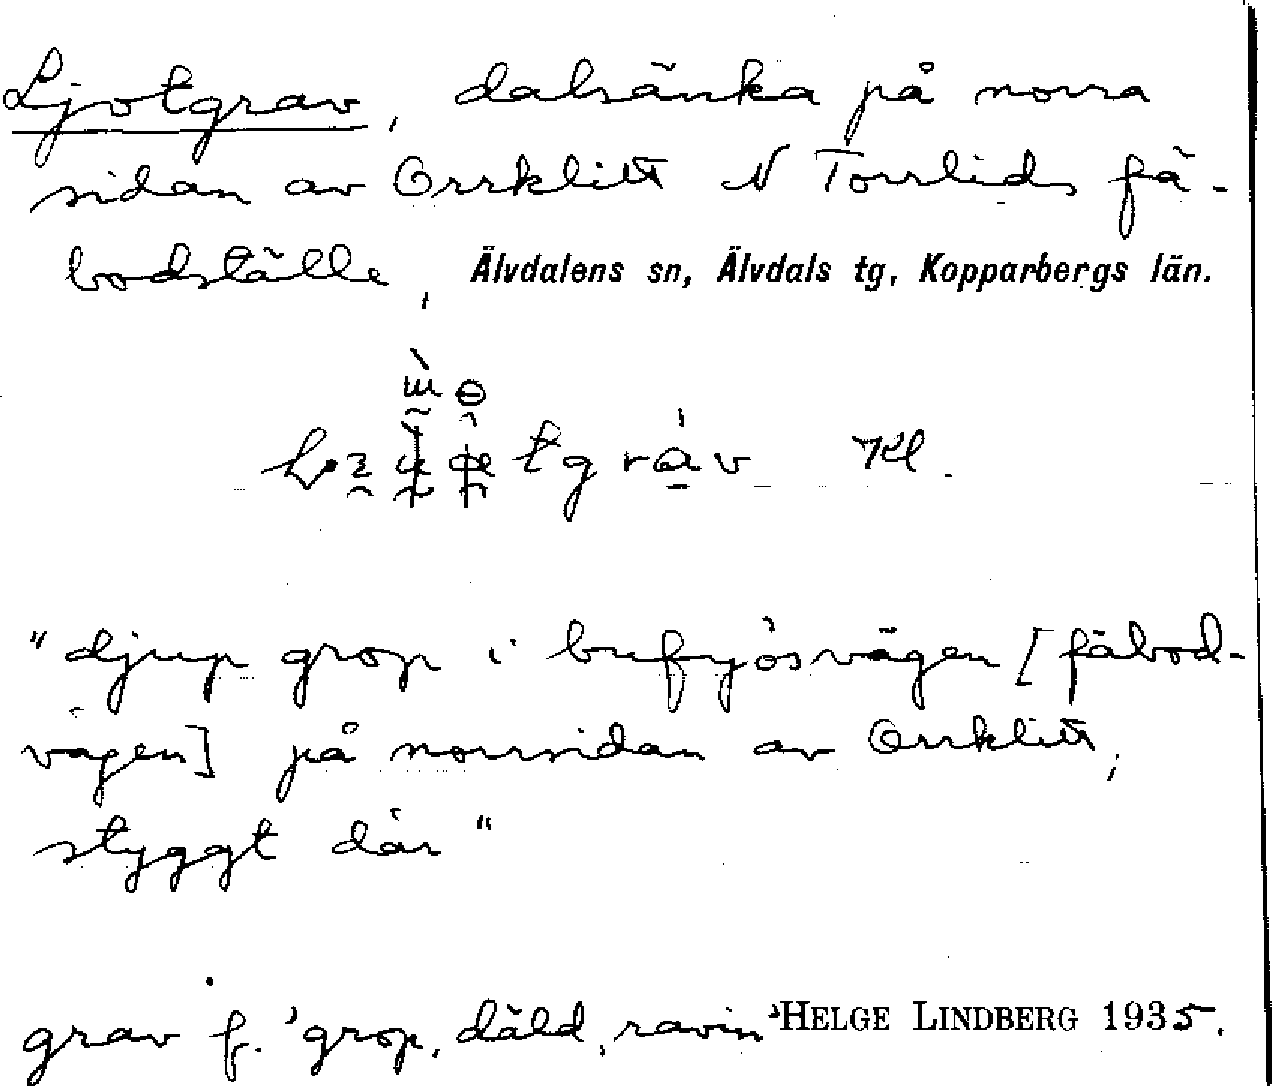 Ljotgrav, dalsänka på norra
sidan av Orrklitt N Torrlids fä-
bodställe, Älvdalens sn, Älvdals tg, Kopparbergs län.
"djup grop i bufjösvägen [fäbod-
vägen] på norrsidan av Orrklitt,
styggt där"
grav f. 'grop, däld, ravin' HELGE LINDBERG 1935.